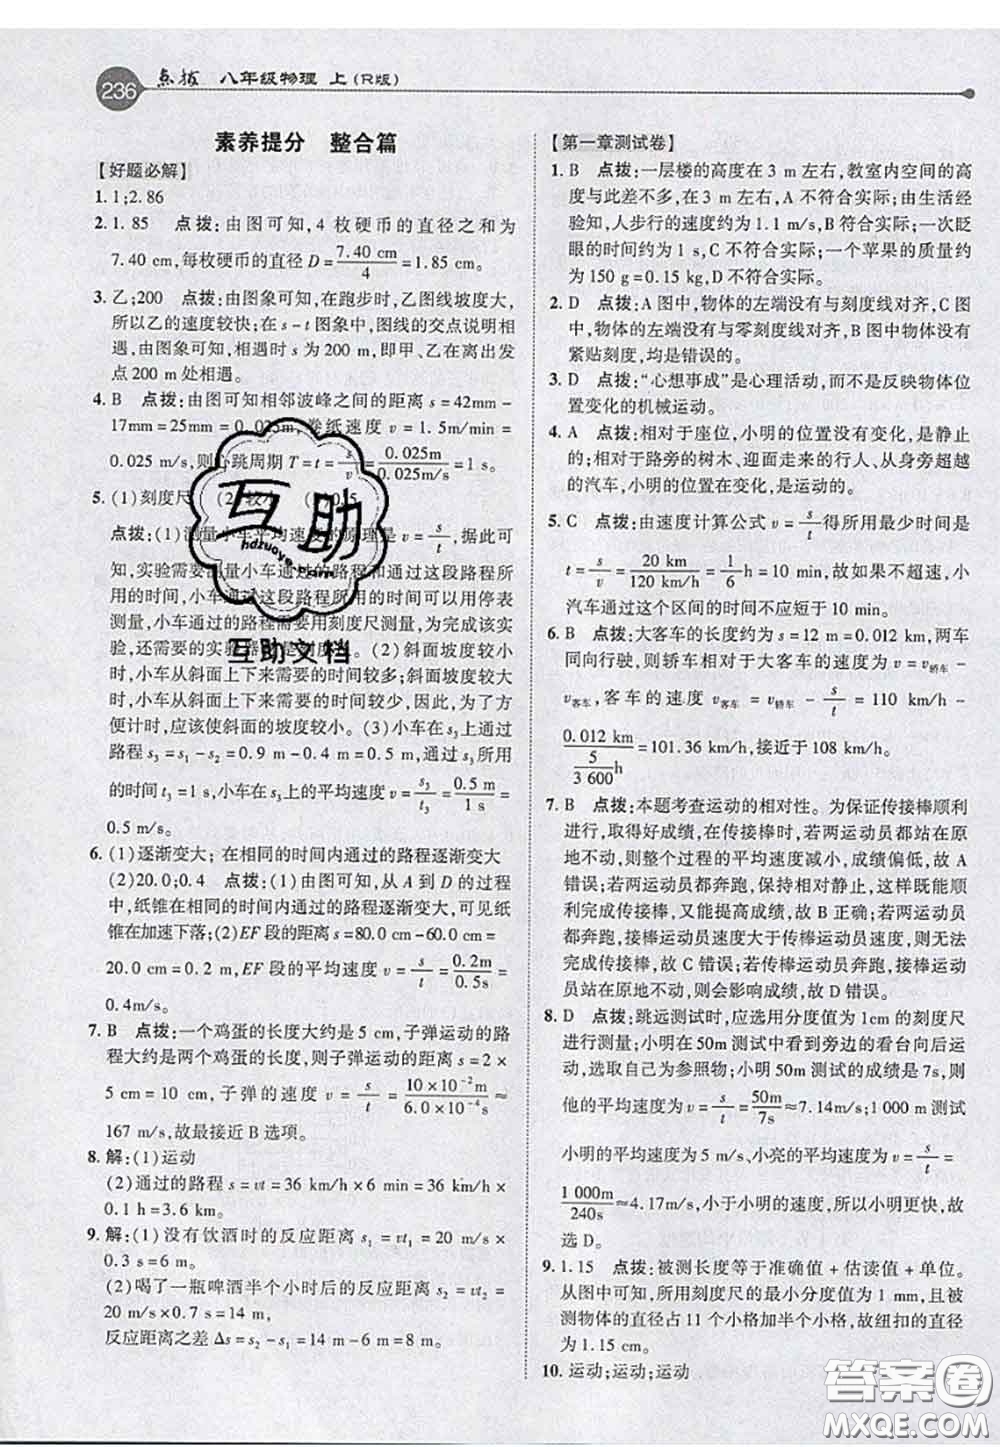 236 点拨 八年级物理 上(R版)
素养提分 整合篇
【好题必解】
1. 1;2.86
2. 1. 85 点拨:由图可知,4 枚硬币的直径之和为
7.40 cm,每枚硬币的直径 D = 7.40 cm/4 = 1.85 cm。
3. 乙;200 点拨:由图象可知,在跑步时,乙图线坡度大,
所以乙的速度较快;在 s - t 图象中,图线的交点说明相
遇,由图象可知,相遇时 s 为 200 m,即甲、乙在离出发
点 200 m 处相遇。
4. B 点拨:由图可知相邻波峰之间的距离 s = 42mm -
17mm = 25mm = 0.025m,卷纸速度 v = 1.5m/min =
0.025 m/s,则心跳周期 T = t = s/v = 0.025m/0.025m/s = 1 s。
5. (1)刻度尺 (2)较小 (3)0.5
点拨:(1)测量小车平均速度的原理是 v = s/t,据此可
知,实验需要测量小车通过的路程和通过这段路程所
用的时间,小车通过这段路程的时间可以用停表测
量,小车通过的路程用刻度尺测量,为完成该实
验,还需要的实验器材是刻度尺。(2)斜面坡度较大
时,小车从斜面上下来需要的时间较多;斜面坡度较小
时,小车从斜面上下来需要的时间较长,所以,为了方
便计时,应该使斜面的坡度较小。(3)小车在 s3 上通过
路程 s3 = s1 - s2 = 0.9 m - 0.4 m = 0.5 m,通过 s3 所用
的时间 t3 = 1 s,小车在 s3 上的平均速度 v = s3/t3 = 0.5 m/1 s =
0.5 m/s。
6. (1)逐渐变大;在相同的时间内通过的路程逐渐变大
(2)20.0;0.4 点拨:(1)由图可知,从 A 到 D 的过程
中,纸锥在相同的时间内通过的路程逐渐变大,可见纸
锥在加速下落;(2)EF 段的距离 s = 80.0 cm - 60.0 cm =
20.0 cm = 0.2 m,EF 段的平均速度 v = s/t = 0.2m/0.5s =
0.4m/s。
7. B 点拨:一个鸡蛋的长度大约是 5 cm,子弹运动的路
程大约是两个鸡蛋的长度,则子弹运动的距离 s = 2 ×
5 cm = 10 cm,子弹的速度 v = s/t = 10×10⁻²m/6.0×10⁻⁴s ≈
167 m/s,故最接近 B 选项。
8. 解:(1)运动
(2)通过的路程 s = vt = 36 km/h × 6 min = 36 km/h ×
0.1 h = 3.6 km。
9. 解:(1)没有饮酒时的反应距离 s1 = vt1 = 20 m/s ×
0.3 s = 6 m。
(2)喝了一瓶啤酒半个小时后的反应距离 s2 = vt2 =
20 m/s×0.7 s = 14 m,
反应距离之差 Δs = s2 - s1 = 14 m - 6 m = 8 m。
【第一章测试卷】
1. B 点拨:一层楼的高度在 3 m 左右,教室内空间的高
度与此差不多,在 3 m 左右,A 不符合实际;由生活经
验知,人步行的速度约为 1.1 m/s,B 符合实际;一次眨
眼的时间约为 1 s,C 不符合实际;一个苹果的质量约
为 150 g = 0.15 kg,D 不符合实际。
2. D 点拨:A 图中,物体的左端没有与刻度线对齐,C 图
中,物体的左端没有与零刻度线对齐,B 图中物体没有
紧贴刻度,均是错误的。
3. D 点拨:“心想事成”是心理活动,而不是反映物体位
置变化的机械运动。
4. A 点拨:相对于座位,小明的位置没有变化,是静止
的;相对于路旁的树木、迎面走来的行人、从身旁超越
的汽车,小明的位置在变化,是运动的。
5. C 点拨:由速度计算公式 v = s/t 得所用最少时间是
t = s/v = 20 km/120 km/h = 1/6 h = 10 min,故如果不超速,小
汽车通过这个区间的时间不应短于 10 min。
6. B 点拨:大客车的长度约为 s = 12 m = 0.012 km,两车
同向行驶,则轿车相对于大客车的速度为 v = v轿车
- v客车,客车的速度 v客车 = v轿车 - s/t = 110 km/h -
0.012 km/(5/3 600 h) = 101.36 km/h,接近于 108 km/h。
7. B 点拨:本题考查运动的相对性。为保证传接棒顺利
进行,取得好成绩,在传接棒时,若两运动员都站在原
地不动,则整个过程的平均速度减小,成绩偏低,故 A
错误;若两运动员都奔跑,保持相对静止,这样既能顺
利完成传接棒,又能提高成绩,故 B 正确;若两运动员
都奔跑,接棒运动员速度大于传棒运动员速度,则无法
完成传接棒,故 C 错误;若传棒运动员奔跑,接棒运动
员站在原地不动,则会影响成绩,故 D 错误。
8. D 点拨:跳远测试时,应选用分度值为1cm的刻度尺
进行测量;小明在50m测试中看到旁边的看台向后运
动,说明以自己为参照物;小明50m测试的成绩是7s,则
他的平均速度为 v = s/t = 50m/7s ≈ 7.14m/s;1 000 m测试
小明的平均速度为 5 m/s,小亮的平均速度为 v = s/t =
1 000m/240s ≈ 4.17m/s,小于小明的速度,所以小明更快,故
选 D。
9. 1.15 点拨:被测长度等于准确值 + 估读值 + 单位。
从图中可知,所用刻度尺的最小分度值为 1 mm,且被
测物体的直径占 11 个小格加半个小格,故纽扣的直径
为 1.15 cm。
10. 运动;运动;运动
互助
hdzuoye.com
互助文档
答案圈
MXQE.COM